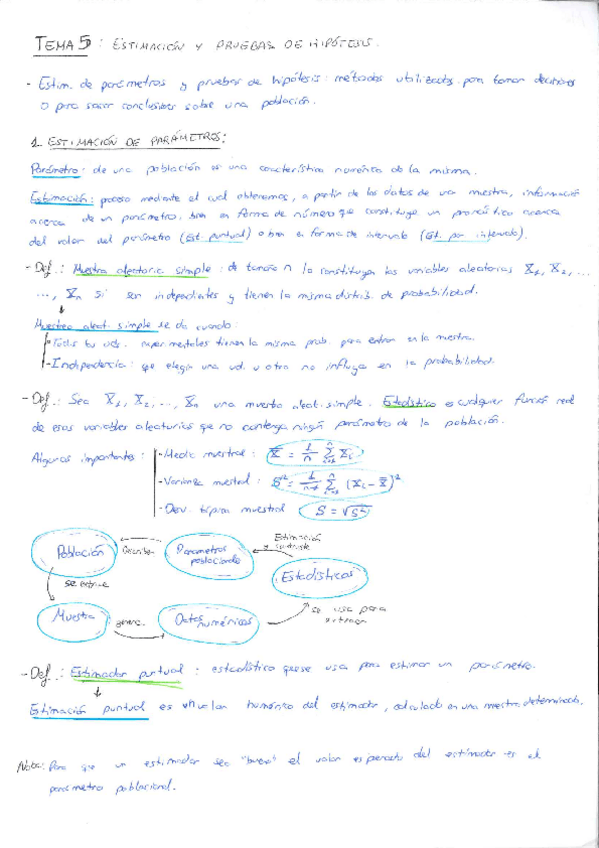 TEMA 5: ESTIMACIÓN Y PRUEBAS DE HIPÓTESIS.
- Estim. de parámetros y pruebas de hipótesis: métodos utilizados para tomar decisiones
o para sacar conclusiones sobre una población.
1. ESTIMACIÓN DE PARÁMETROS:
Parámetro: de una población es una característica numérica de la misma.
Estimación: proceso mediante el cual obtenemos, a partir de los datos de una muestra, información
acerca de un parámetro, bien en forma de número que constituye un pronóstico acerca
del valor del parámetro (Est. puntual) o bien en forma de intervalo (Est. por intervalo).
- Def.: Muestra aleatoria simple: de tamaño n la constituyen las variables aleatorias X₁, X₂, ...
..., Xn si son independientes y tienen la misma distrib. de probabilidad.
↓
Muestreo aleat. simple se da cuando:
- Todas las uds. experimentales tienen la misma prob. para entrar en la muestra.
- Independencia: que elegir una ud. u otra no influya en la probabilidad.
- Def.: Sea X₁, X₂, ..., Xn una muestra aleat. simple. Estadístico es cualquier función real
de esas variables aleatorias que no contenga ningún parámetro de la población.
Algunos importantes: - Media muestral: X̄ = 1/n Σ Xi
- Varianza muestral: S² = 1/(n-1) Σ (Xi - X̄)²
- Desv. típica muestral S = √S²
Población
describen
Parámetros poblacionales
Estimación y contraste
Estadísticos
se extrae
Muestra
genera
Datos numéricos
se usa para
- Def.: Estimador puntual: estadístico que se usa para estimar un parámetro.
↓
Estimación puntual es el valor numérico del estimador, calculado en una muestra determinada.
Nota: Para que un estimador sea "bueno" el valor esperado del estimador es el
parámetro poblacional.